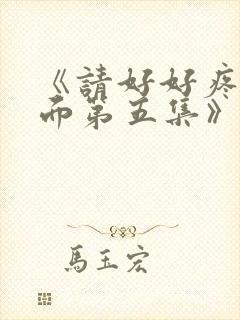 《請好好疼
而第五集》
馬玉宏